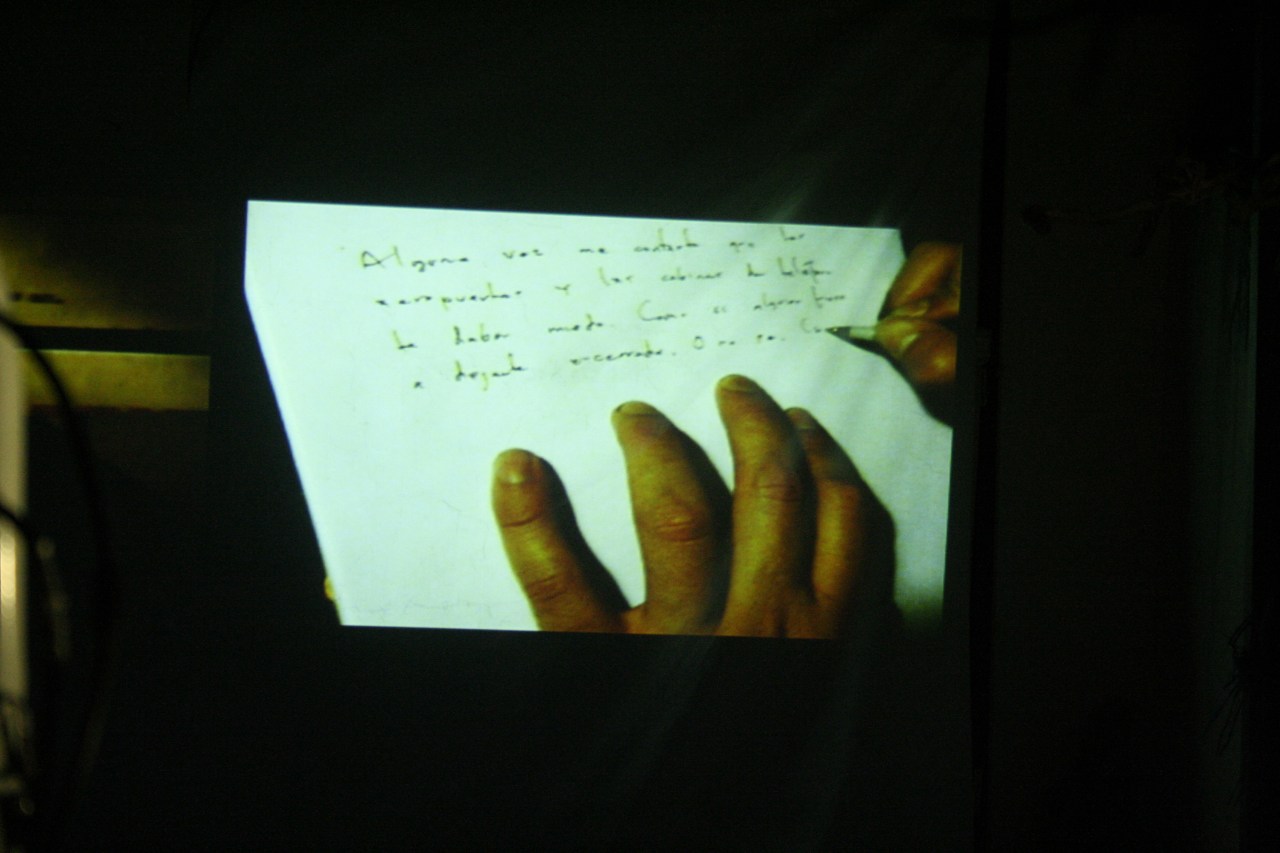 Alguna vez me contaste que los
aeropuertos y las cabinas de teléfono
te daban miedo. Como si alguien fuera
a dejarte encerrado. O no se.